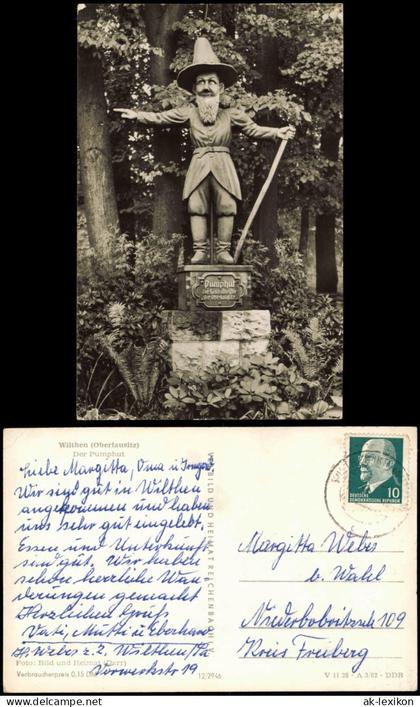 ak-klexikon.de
Pumphut
Wilthen (Oberlausitz)
Der Pumphut
Liebe Margitta, Oma u. Irmgard
Wir sind gut in Wilthen
angekommen und haben
uns sehr gut eingelebt,
Essen und Unterkunft
sind gut. Wir haben
schon herrliche Wan
derungen gemacht
Herzlichen Gruß
Vati, Mutti u. Eberhard
Weber z.Z. Wilthen/
Vorwerkstr 19
Foto: Bild und Heimat (Darr)
Verbraucherpreis 0,15
12/2946
BILD UND HEIMAT REICHENBACH I. V.
10
DEUTSCHE
DEMOKRATISCHE REPUBLIK
Margitta Weber
b. Wahl
Niederbobritzsch 109
Kreis Freiberg
V 11 28 - A 3/62 - DDR
www.ak-ansichtskarten.de ak-lexikon.com